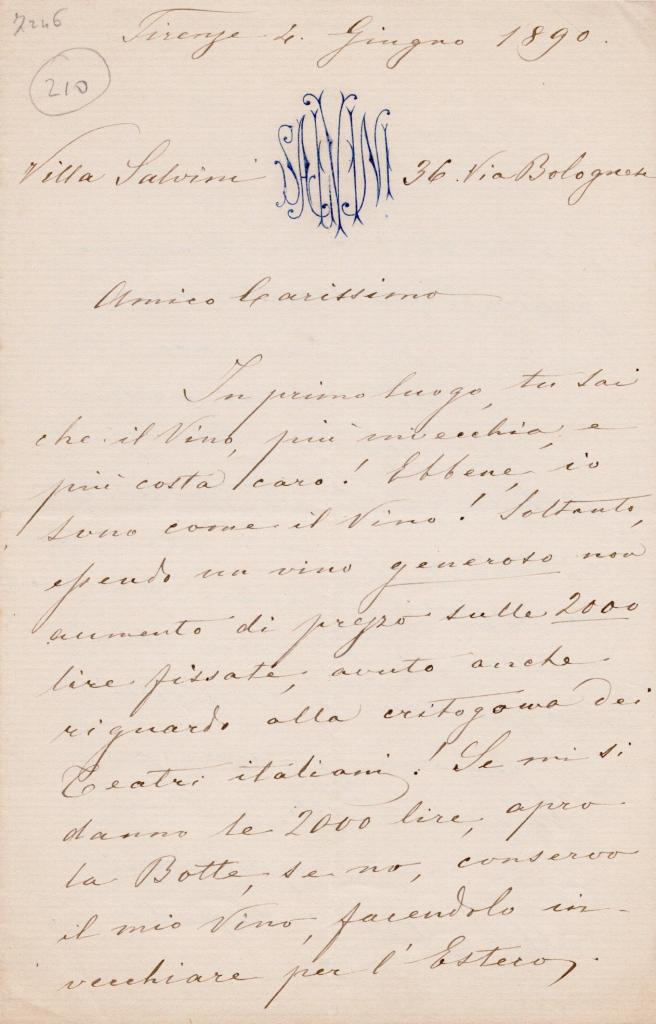 7246
Firenze 4. Giugno 1890.
210
SALVINI
Villa Salvini 36. Via Bolognese
Amico Carissimo
In primo luogo, tu sai
che il Vino, più invecchia, e
più costa caro! Ebbene, io
sono come il Vino! Soltanto,
essendo un vino generoso non
aumento di prezzo sulle 2000
lire fissate, avuto anche
riguardo alla critogama dei
Teatri italiani! Se mi si
danno le 2000 lire, apro
la Botte, se no, conservo
il mio Vino, facendolo in-
vecchiare per l'Estero.